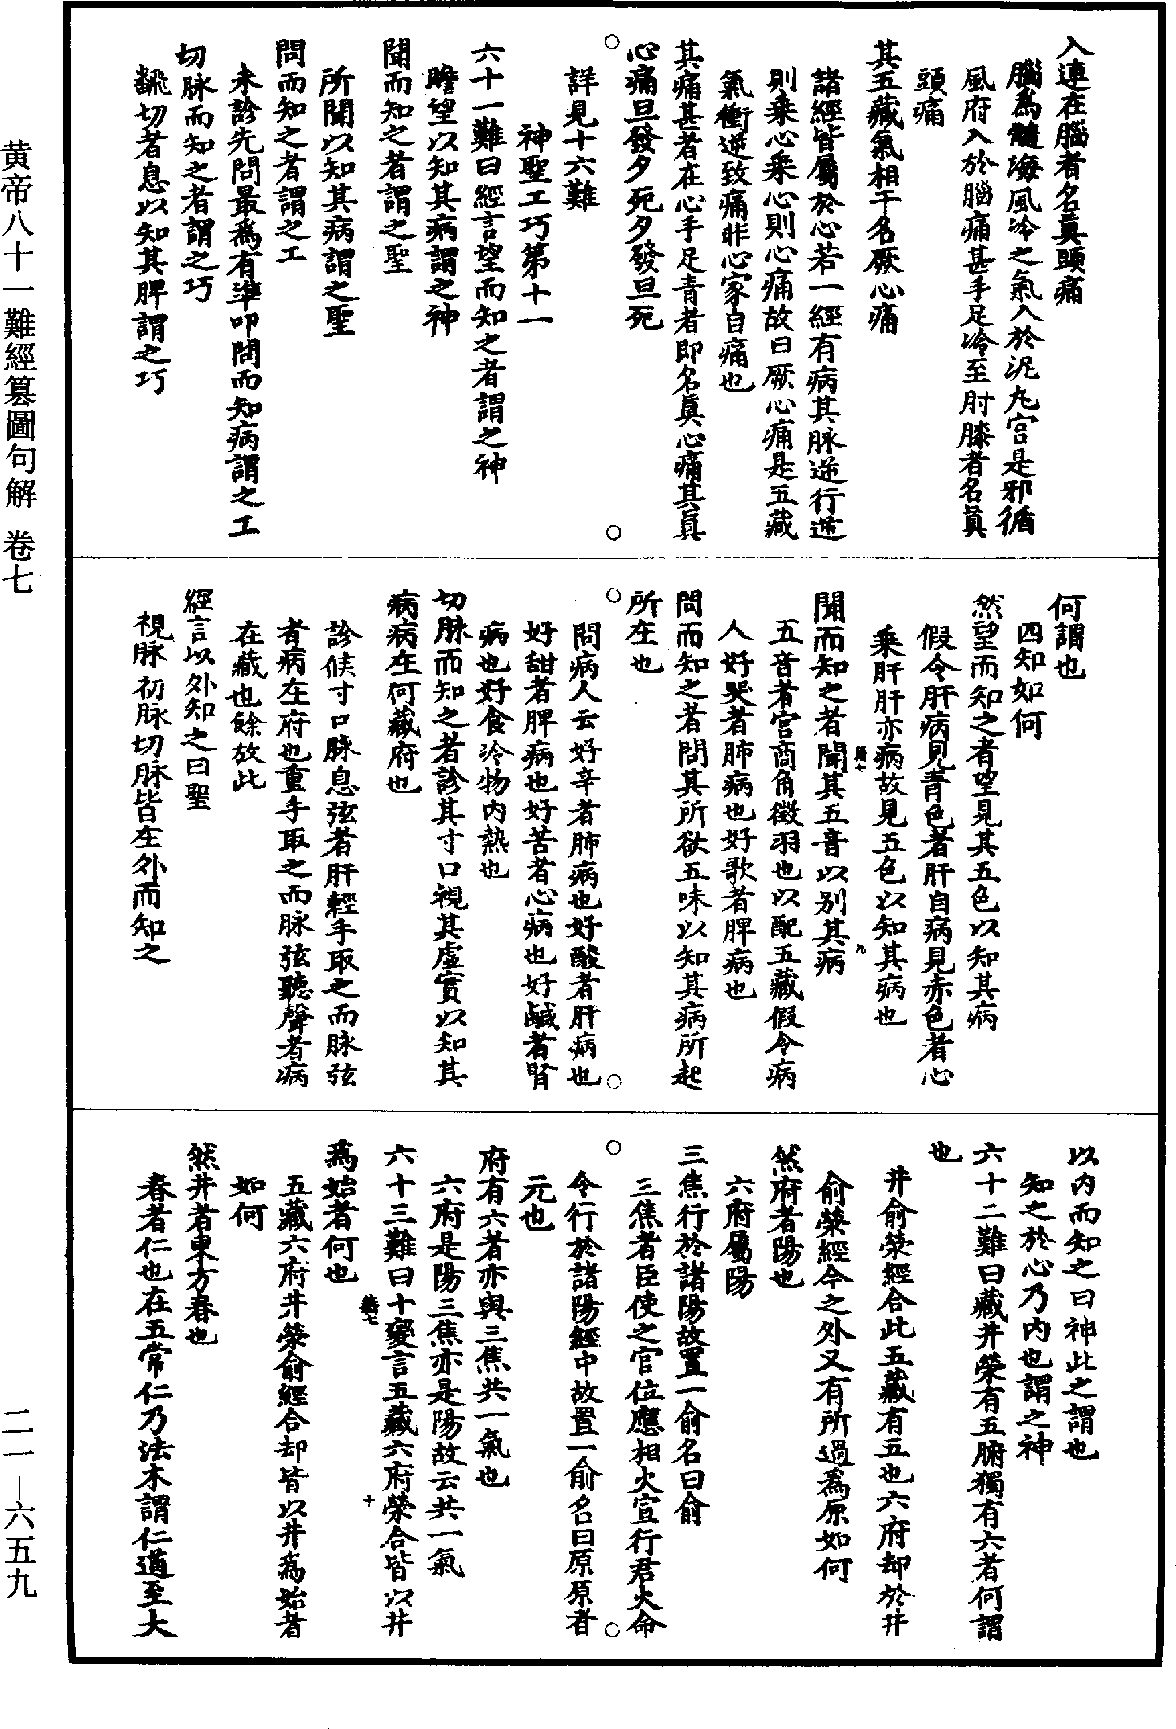 入連在腦者名真頭痛
腦為髓海風冷之氣入於泥丸宮是邪循
風府入於腦痛甚手足冷至肘膝者名真
頭痛
其五藏氣相干名厥心痛
諸經皆屬於心若一經有病其脉逆行逆
則乘心乘心則心痛故曰厥心痛是五藏
氣衝逆致痛非心家自痛也
其痛甚者在心手足青者即名真心痛其真
心痛旦發夕死夕發旦死
詳見十六難
神聖工巧第十一
六十一難曰經言望而知之者謂之神
瞻望以知其病謂之神
聞而知之者謂之聖
所聞以知其病謂之聖
問而知之者謂之工
未診先問最為有準叩問而知病謂之工
切脉而知之者謂之巧
切者息以知其脾謂之巧
何謂也
四知如何
然望而知之者望見其五色以知其病
假令肝病見青色者肝自病見赤色者心
乘肝肝亦病故見五色以知其病也
聞而知之者聞其五音以別其病
五音者宮商角徵羽也以配五藏假令病
人好哭者肺病也好歌者脾病也
問而知之者問其所欲五味以知其病所起
所在也
問病人云好辛者肺病也好酸者肝病也
好甜者脾病也好苦者心病也好鹹者腎
病也好食冷物內熱也
切脉而知之者診其寸口視其虛實以知其
病病在何藏府也
診候寸口脉息弦者肝輕手取之而脉弦
者病在府也重手取之而脉弦聽聲者病
在藏也餘放此
經言以外知之曰聖
視脉初脉切脉皆在外而知之
以內而知之曰神此之謂也
知之於心乃內也謂之神
六十二難曰藏井榮有五腑獨有六者何謂
也
井俞滎經合此五藏有五也六府却於井
俞滎經合之外又有所過為原如何
然府者陽也
六府屬陽
三焦行於諸陽故置一俞名曰俞
三焦者臣使之官位應相火宣行君火命
令行於諸陽經中故置一俞名曰原原者
元也
府有六者亦與三焦共一氣也
六府是陽三焦亦是陽故云共一氣
六十三難曰十變言五藏六府滎合皆以井
為始者何也
五藏六府井滎俞經合却皆以井為始者
如何
然井者東方春也
春者仁也在五常仁乃法木謂仁道至大
黃帝八十一難經篡圖句解 卷七
二一—六五九